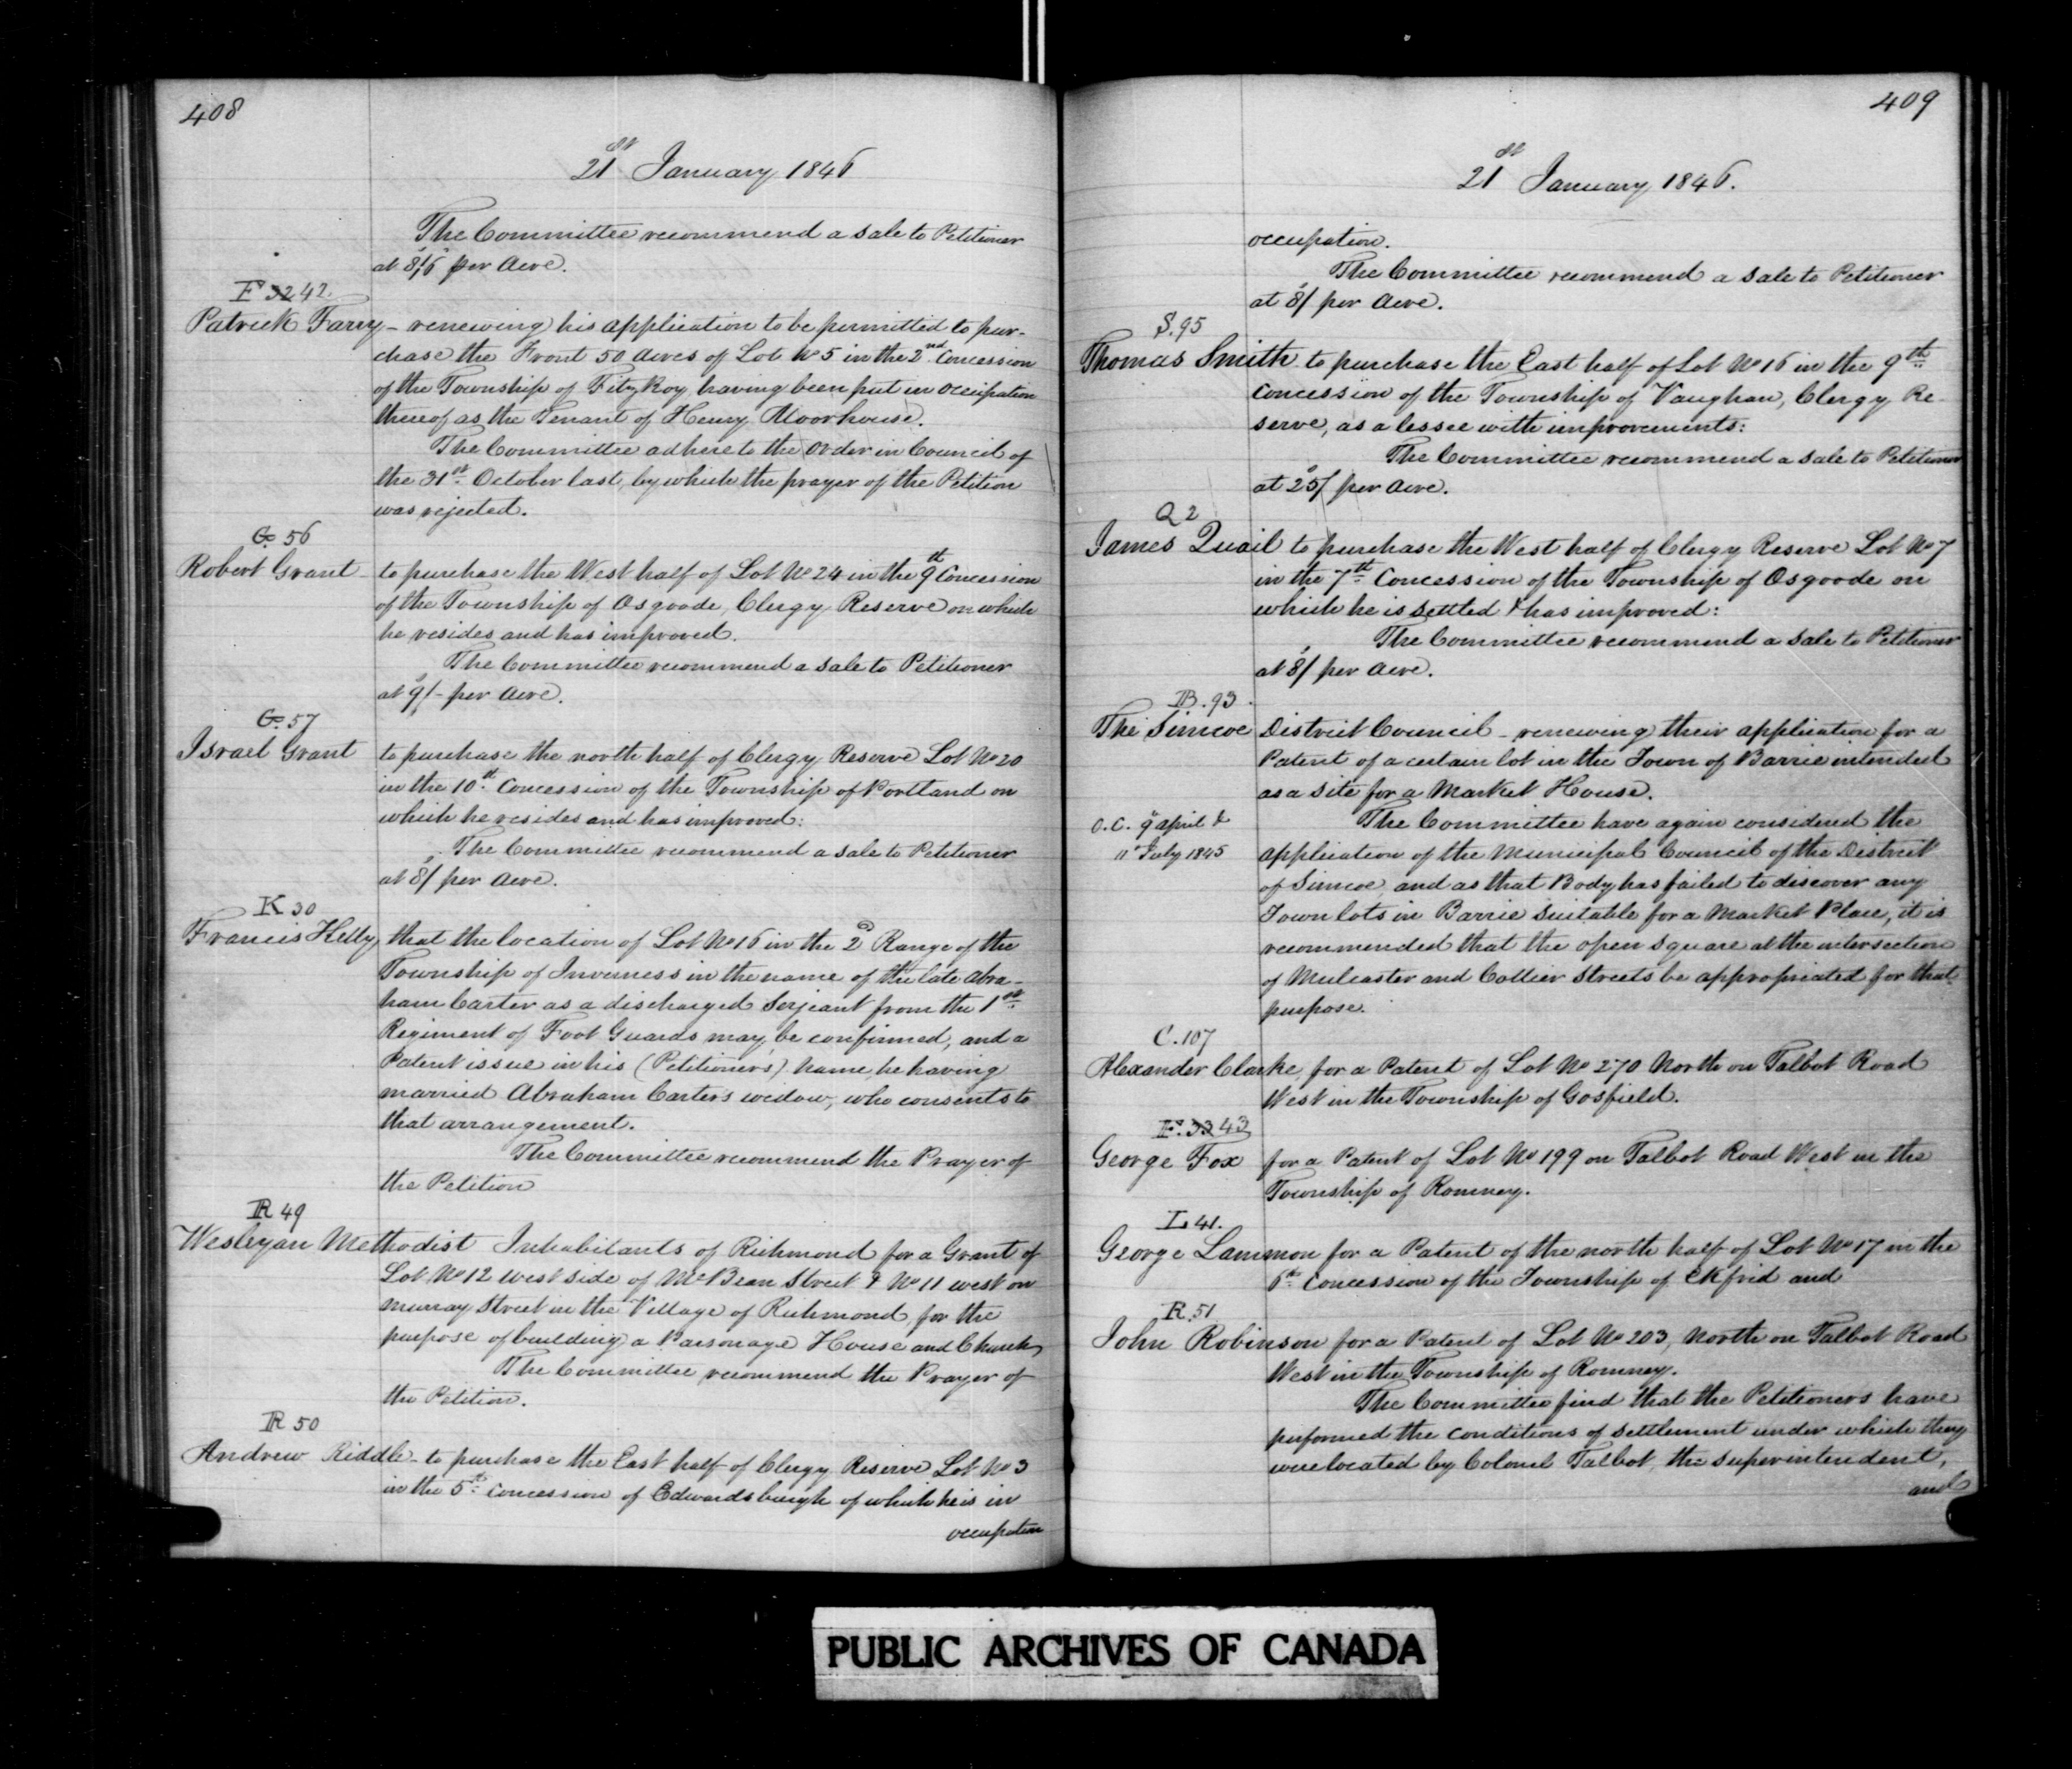 408
21st January 1846
The Committee recommend a sale to Petitioner
at 8/6 per Acre.
F 32 42.
Patrick Farry – renewing his application to be permitted to pur-
chase the Front 50 Acres of Lot No 5 in the 2nd Concession
of the Township of FitzRoy having been put in occupation
thereof as the Tenant of Henry Moorhouse.
The Committee adhere to the Order in Council of
the 31st October last, by which the prayer of the Petition
was rejected.
G 56
Robert Grant – to purchase the West half of Lot No 24 in the 9th Concession
of the Township of Osgoode, Clergy Reserve on which
he resides and has improved.
The Committee recommend a sale to Petitioner
at 9/- per Acre.
G. 57
Israel Grant to purchase the north half of Clergy Reserve Lot No 20
in the 10th Concession of the Township of Portland on
which he resides and has improved:
The Committee recommend a sale to Petitioner
at 8/ per Acre.
K 30
Francis Kelly, that the location of Lot No 16 in the 2d Range of the
Township of Inverness in the name of the late Abra-
ham Carter as a discharged Serjeant from the 1st
Regiment of Foot Guards may be confirmed, and a
Patent issue in his (Petitioners) name, he having
married Abraham Carters widow, who consents to
that arrangement.
The Committee recommend the Prayer of
the Petition
R 49
Wesleyan Methodist Inhabitants of Richmond for a Grant of
Lot No 12 west side of McBean Street & No 11 west on
Murray Street in the Village of Richmond, for the
purpose of building a Parsonage House and Church,
The Committee recommend the Prayer of
the Petition.
R 50
Andrew Riddle – to purchase the East half of Clergy Reserve Lot No 3
in the 5th Concession of Edwardsburgh of which he is in
occupation
409
21st January 1846.
occupation.
The Committee recommend a sale to Petitioner
at 8/ per Acre.
S. 95
Thomas Smith to purchase the East half of Lot No 16 in the 9th
Concession of the Township of Vaughan, Clergy Re-
serve, as a lessee with improvements:
The Committee recommend a sale to Petitioner
at 25/ per Acre.
Q 2
James Quail to purchase the West half of Clergy Reserve Lot No 7
in the 7th Concession of the Township of Osgoode on
which he is settled & has improved:
The Committee recommend a sale to Petitioner
at 8/ per Acre.
B. 93.
The Simcoe District Council – renewing their application for a
Patent of a certain lot in the Town of Barrie intended
as a site for a Market House.
O. C. 9 April &
11 July 1845
The Committee have again considered the
application of the Municipal Council of the District
of Simcoe, and as that Body has failed to discover any
Town lots in Barrie suitable for a Market Place, it is
recommended that the open square at the intersection
of Mulcaster and Collier Streets be appropriated for that
purpose.
C. 107
Alexander Clarke, for a Patent of Lot No 270 North on Talbot Road
West in the Township of Gosfield.
F. 33 43
George Fox for a Patent of Lot No 199 on Talbot Road West in the
Township of Romney.
L 41.
George Lammon for a Patent of the north half of Lot No 17 in the
6th Concession of the Township of Ekfrid and
R. 51
John Robinson for a Patent of Lot No 203, North on Talbot Road
West in the Township of Romney.
The Committee find that the Petitioners have
performed the conditions of settlement under which they
were located by Colonel Talbot, the superintendent,
and
PUBLIC ARCHIVES OF CANADA